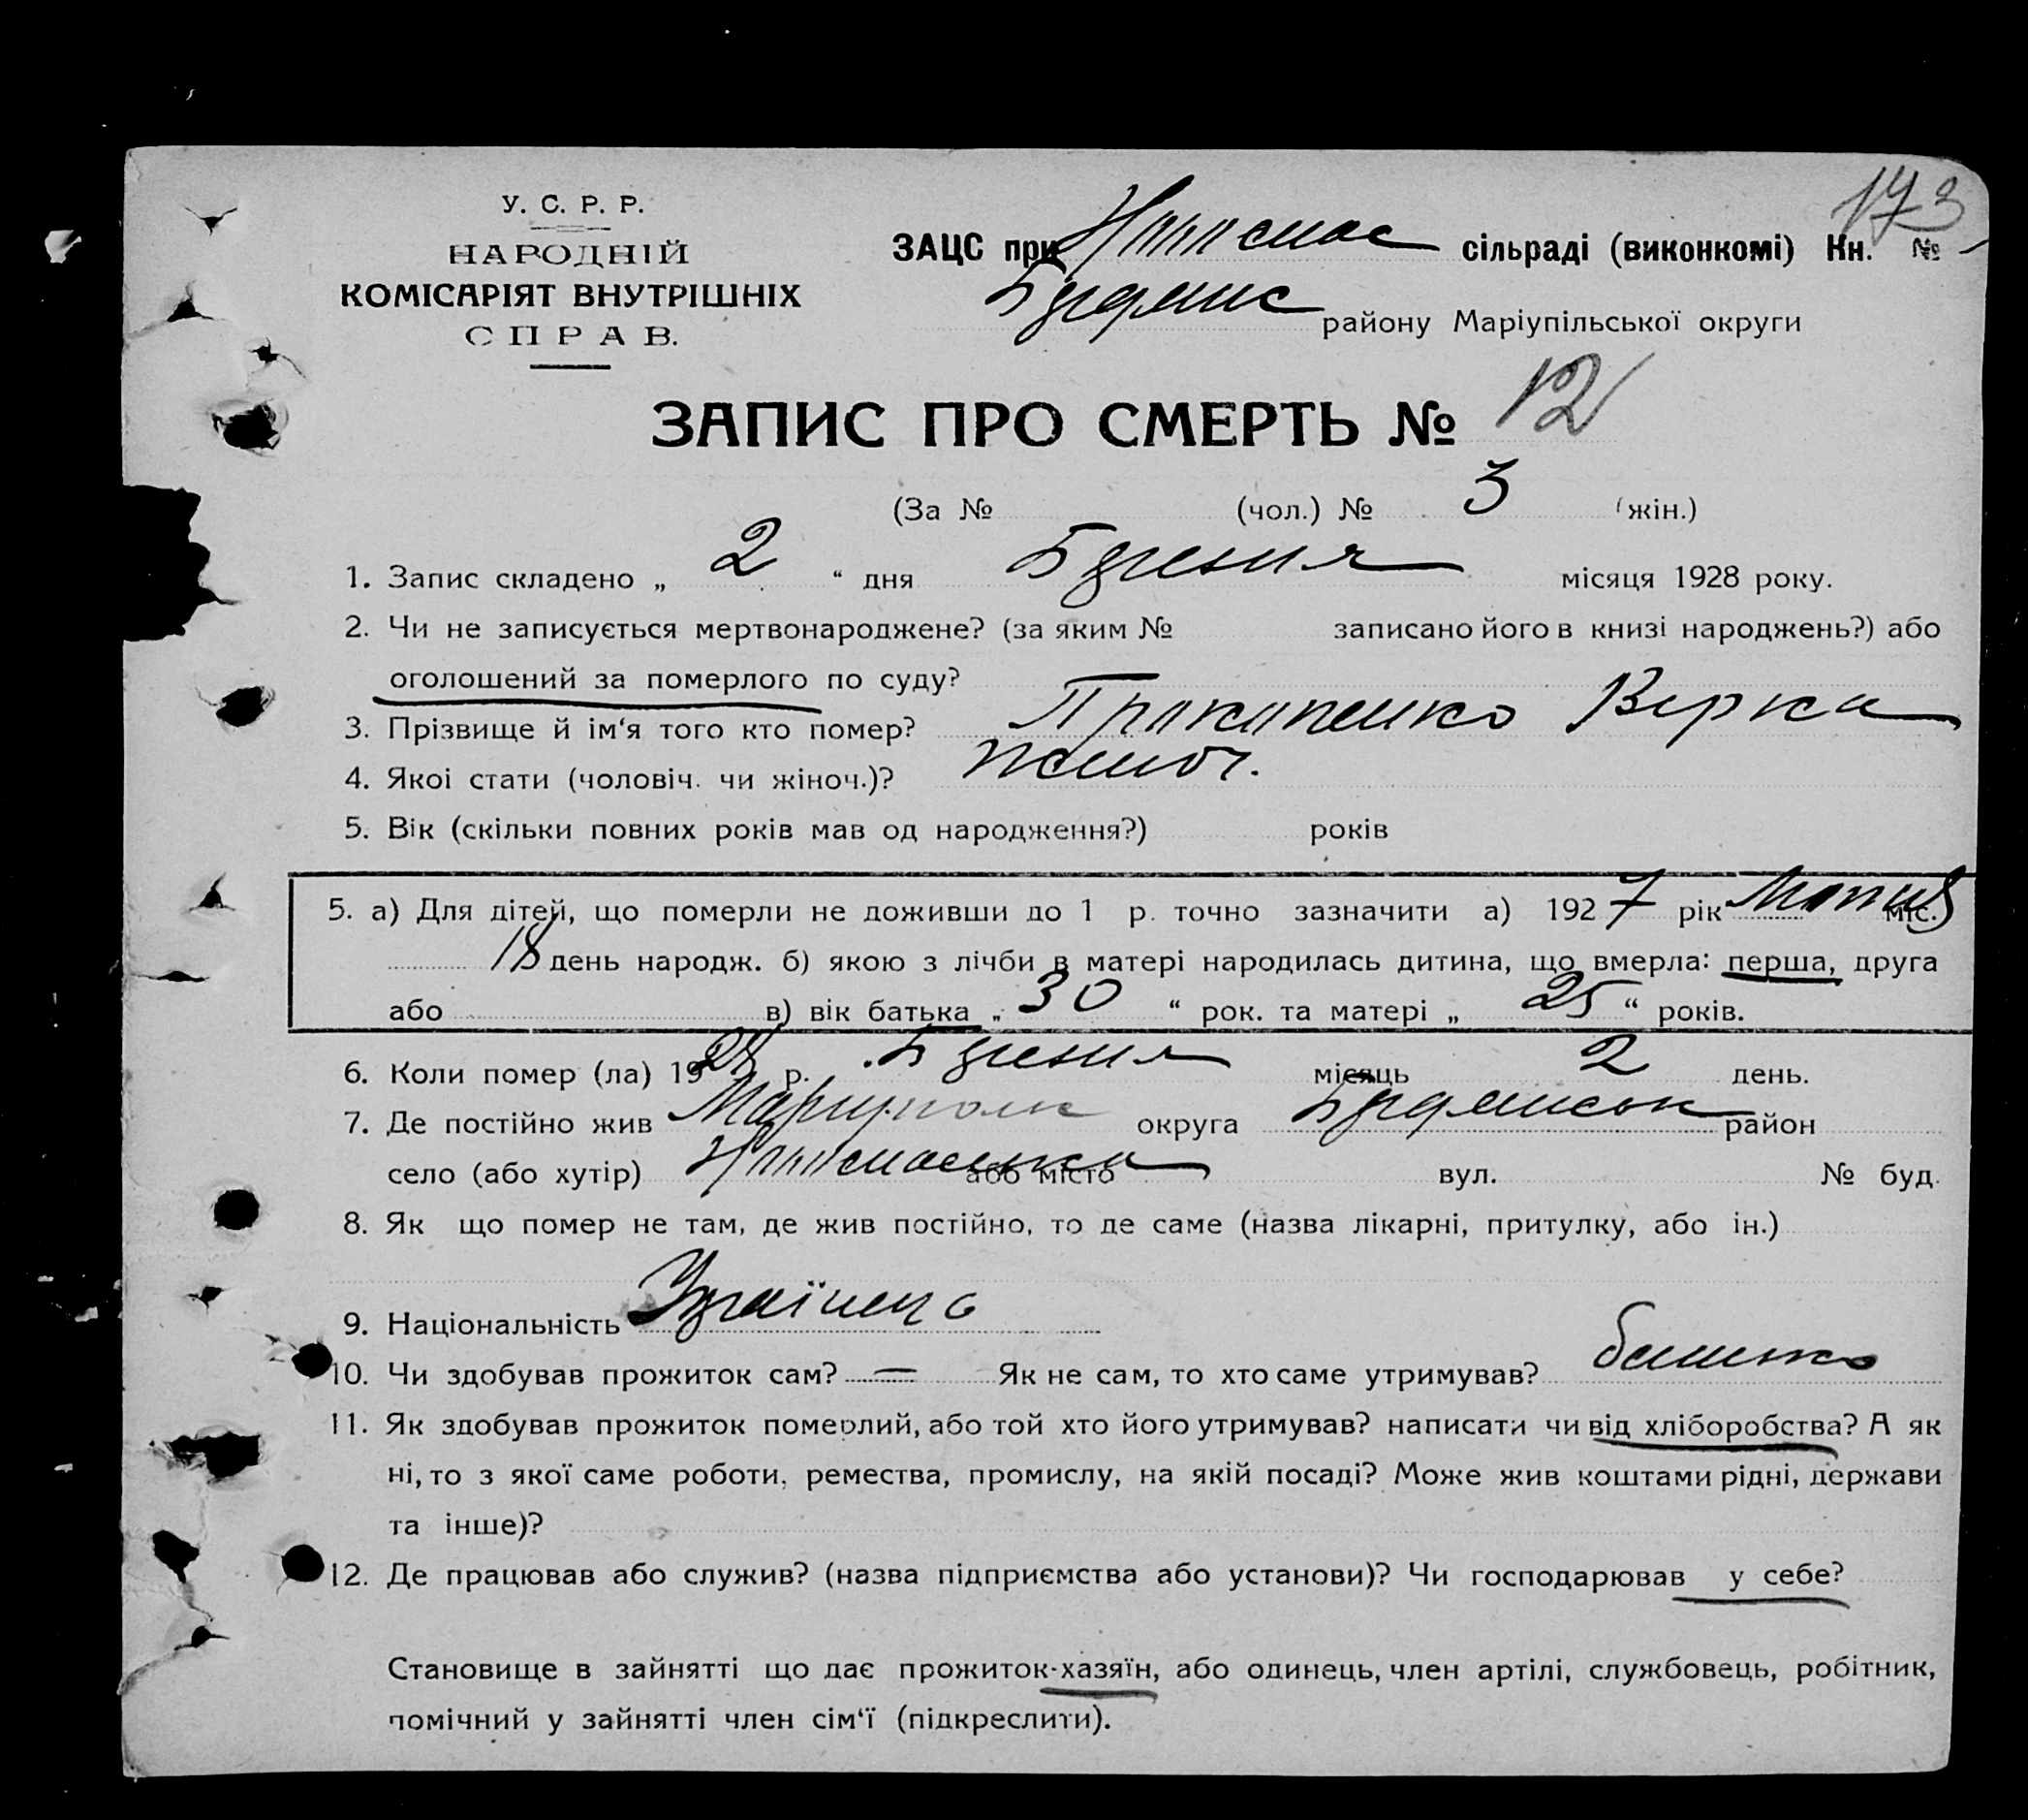 173
У. С. Р. Р.
НАРОДНІЙ
КОМІСАРІЯТ ВНУТРІШНІХ
СПРАВ.
ЗАЦС при сільраді (виконкомі) Кн. №
району Маріупільської округи
ЗАПИС ПРО СМЕРТЬ № 12
(За № (чол.) № 3 (жін.)
1. Запис складено „ 2 “ дня Березня місяця 1928 року.
2. Чи не записується мертвонароджене? (за яким № записано його в книзі народжень?) або
оголошений за померлого по суду?
3. Прізвище й ім‘я того кто помер? Прокопенко Вєрка
4. Якоі стати (чоловіч. чи жіноч.)? жиноч.
5. Вік (скільки повних років мав од народження?) років
5. а) Для дітей, що померли не доживши до 1 р. точно зазначити а) 1927 рік міс.
18 день народж. б) якою з лічби в матері народилась дитина, що вмерла: перша, друга
або в) вік батька „ 30 “ рок. та матері „ 25 “ років.
6. Коли помер (ла) 1928 р. Березня місяць 2 день.
7. Де постійно жив Маріуполк округа район
село (або хутір) або місто вул. № буд.
8. Як що помер не там, де жив постійно, то де саме (назва лікарні, притулку, або ін.)
9. Національність Україnець
10. Чи здобував прожиток сам? — Як не сам, то хто саме утримував? батько
11. Як здобував прожиток померлий, або той хто його утримував? написати чи від хліборобства? А як
ні, то з якої саме роботи, ремества, промислу, на якій посаді? Може жив коштами рідні, держави
та інше)?
12. Де працював або служив? (назва підприємства або установи)? Чи господарював у себе?
Становище в зайнятті що дає прожиток-хазяїн, або одинець, член артілі, службовець, робітник,
помічний у зайнятті член сім‘ї (підкреслити).